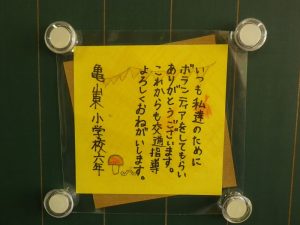 いつも私達のために
ボランティアをしてもらい
ありがとうございます。
これからも交通指導
よろしくおねがいします。
亀山東小学校六年